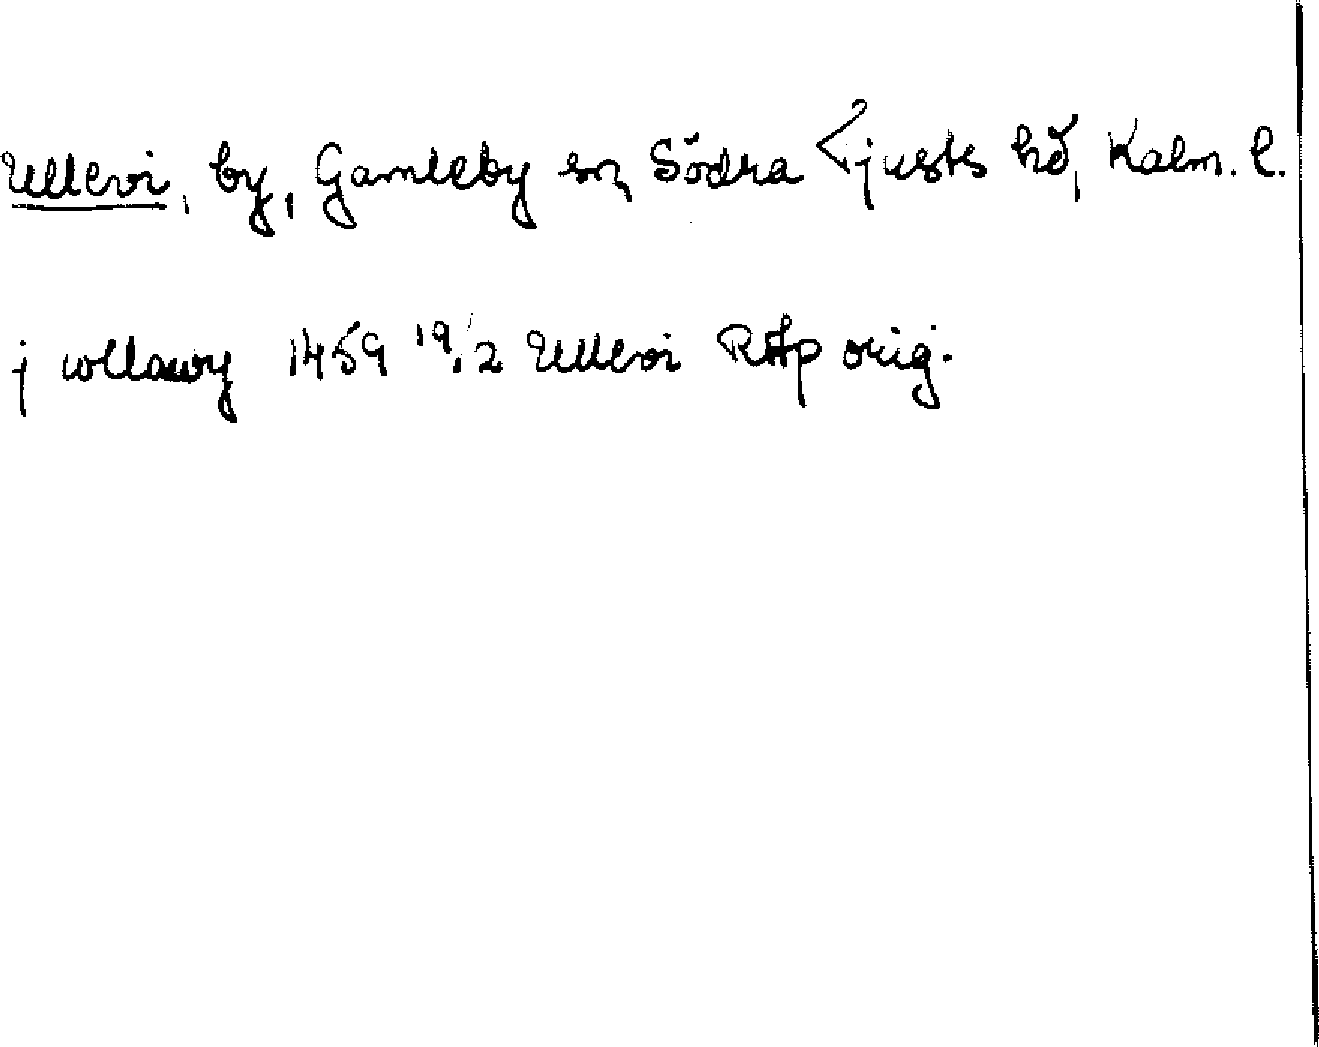 Ullevi, by, Gamleby sn, Södra Tjusts hd, Kalm. l.
j wllawy 1459 19/2 Ullevi RAp orig.